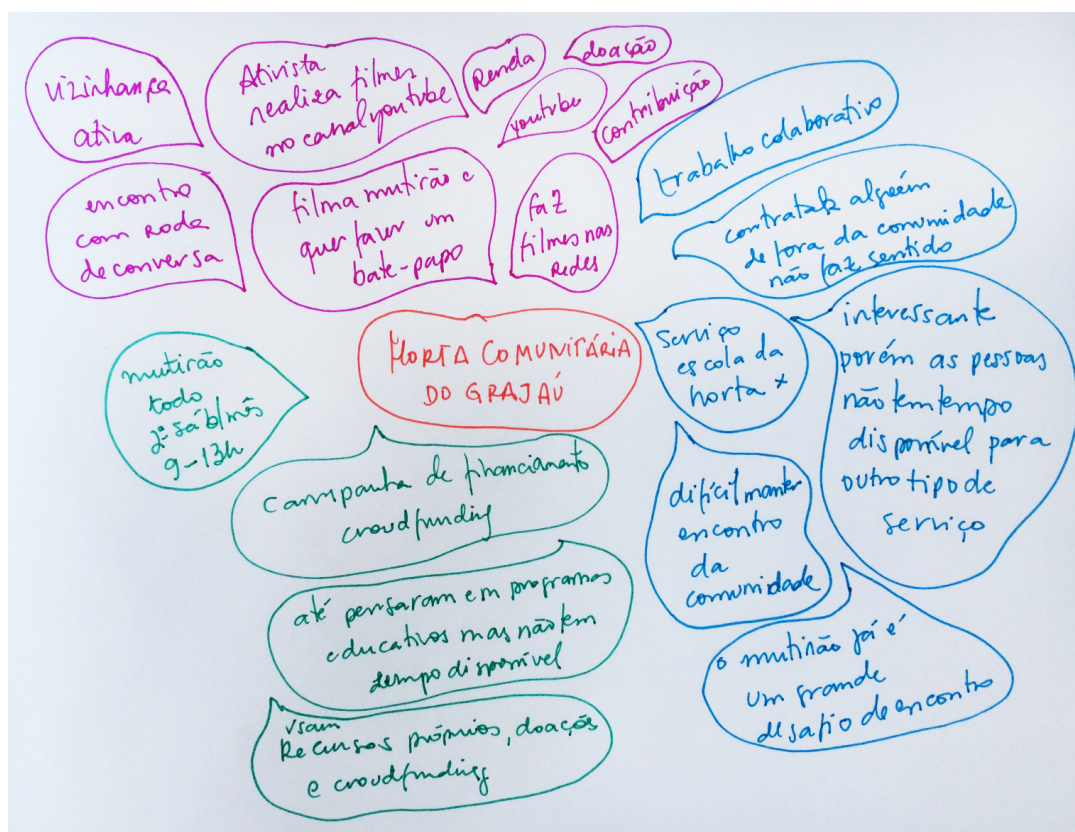 vizinhança
ativa
Ativista
realiza filmes
no canal youtube
Renda
doação
youtube
contribuição
trabalho colaborativo
encontro
com roda
de conversa
filma mutirão e
quer fazer um
bate-papo
faz
filmes nas
redes
contratar alguém
de fora da comunidade
não faz sentido
mutirão
todo
2º sáb/mês
9-13h
HORTA COMUNITÁRIA
DO GRAJAÚ
Serviço
escola da
horta x
interessante
porém as pessoas
não tem tempo
disponível para
outro tipo de
serviço
Campanha de financiamento
crowdfunding
difícil manter
encontro
da
comunidade
até pensaram em programas
educativos mas não tem
tempo disponível
o mutirão já é
um grande
desafio de encontro
usam
Recursos próprios, doações
e crowdfunding